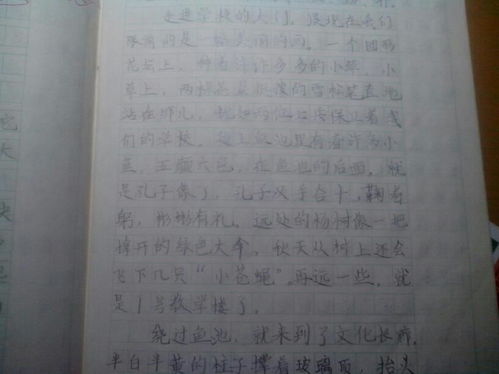 走进学校的大门，展现在我们
眼前的是一幅美丽的画。一个圆形
花坛上，种着许许多多的小草，小
草上，两棵高大的雪松笔直地
站在那儿，保护着我
们的学校。鱼池里有着许多小
鱼，五颜六色，在鱼池的后面，就
是孔子像了，孔子双手合十，鞠着
躬，彬彬有礼。远处的杨树像一把
撑开的绿色大伞，秋天从树上还会
飞下几只“小苍蝇”。再远一些，就
是1号教学楼了。
绕过鱼池，就来到了文化长廊，
半白半黄的柱子撑着玻璃顶，抬头
它
大